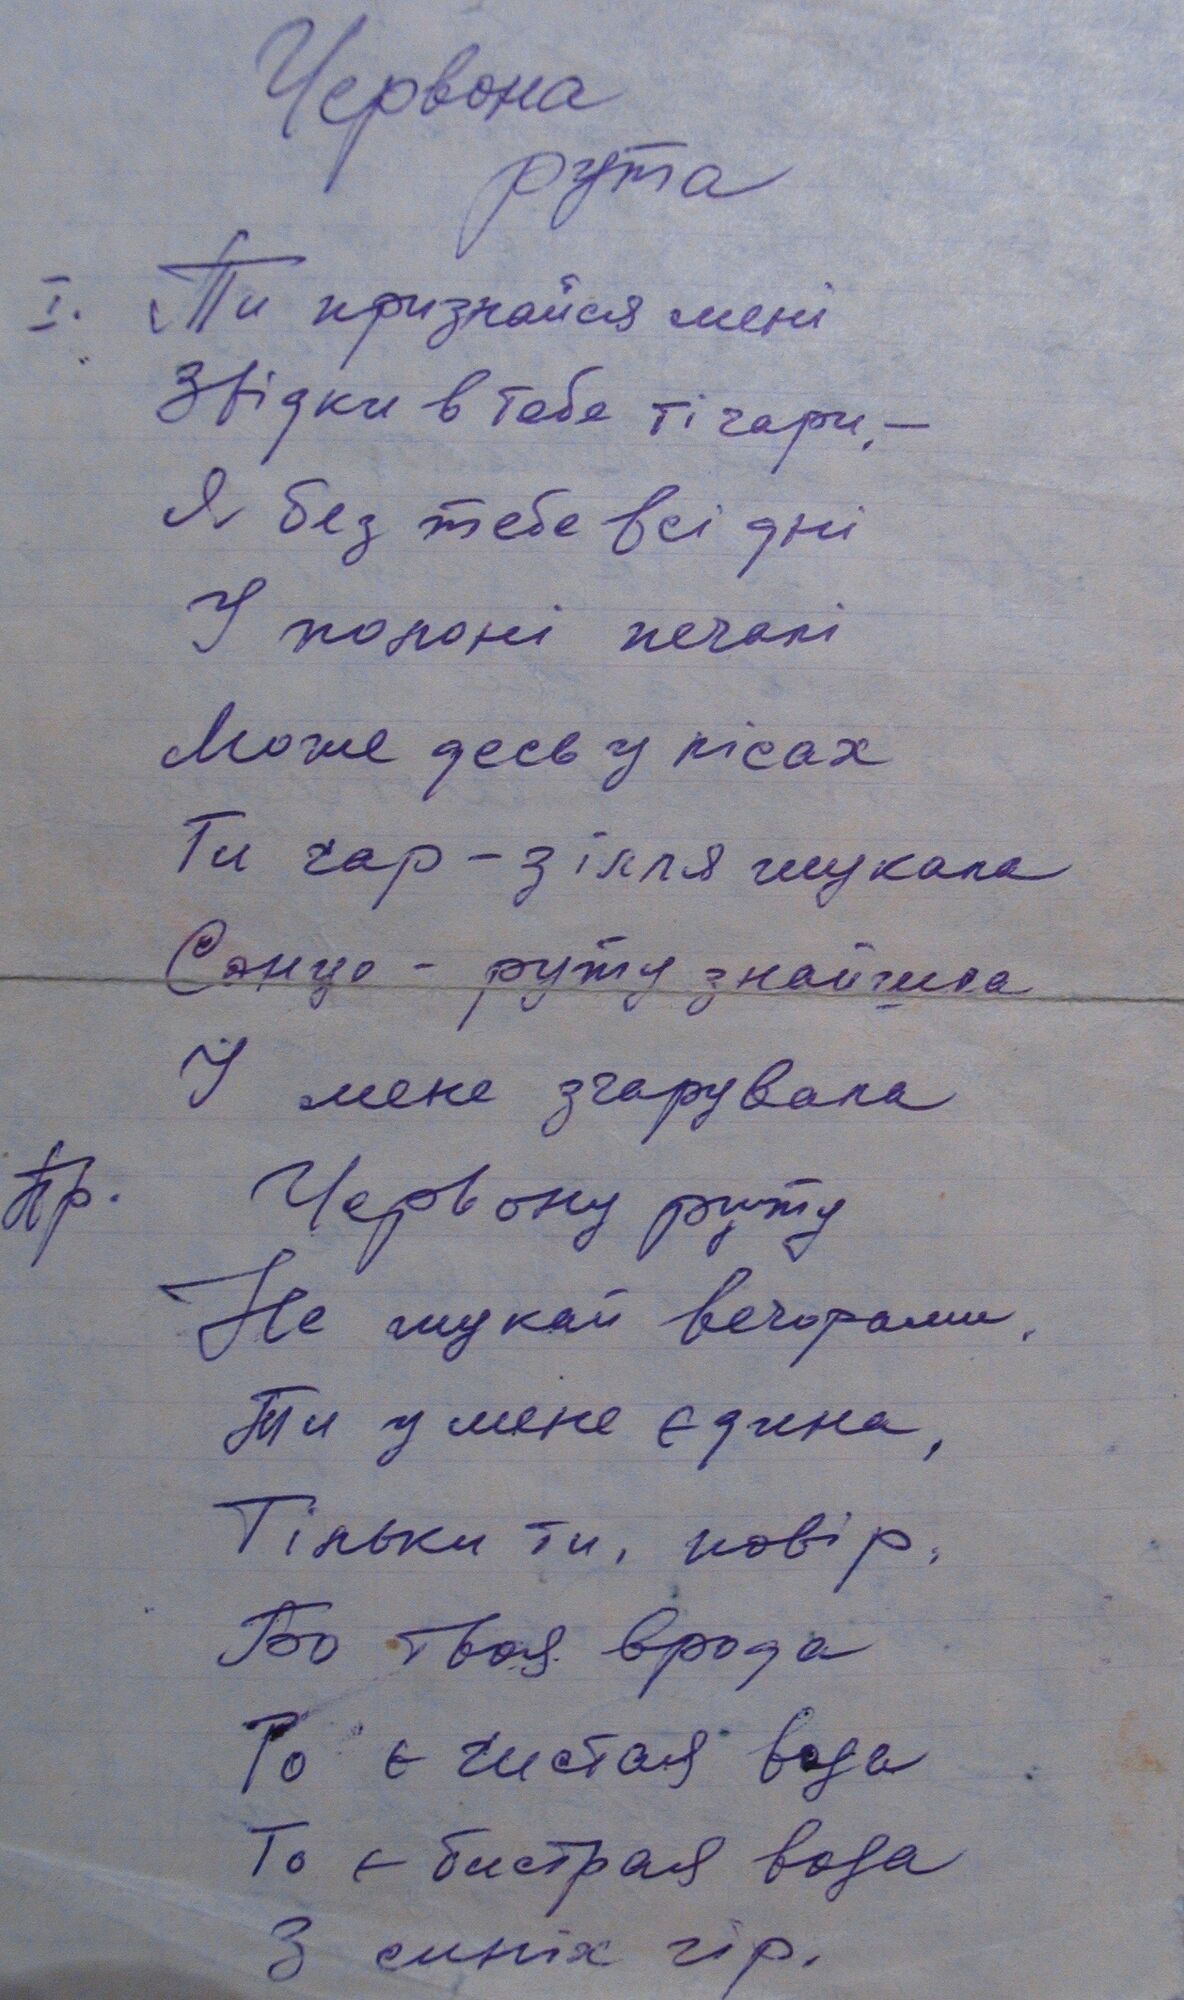 Червона
рута
I. Ти признайся мені
Звідки в тебе ті чари, –
Я без тебе всі дні
У полоні печалі
Може десь у лісах
Ти чар – зілля шукала
Сонцо – руту знайшла
І мене зчарувала
Пр. Червону руту
Не шукай вечорами,
Ти у мене єдина,
Тільки ти, повір,
Бо твоя врода
То є чистая вода
То є бистрая вода
З синіх гір.